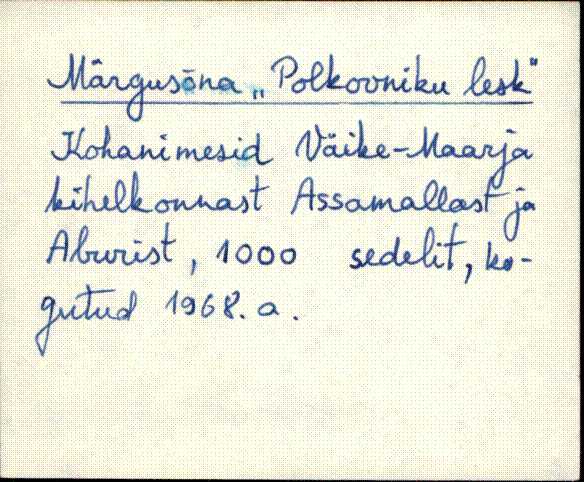 Märgusõna „Polkovniku lesk"
Kohanimesid Väike-Maarja
kihelkonnast Assamallast ja
Aburist, 1000 sedelit, ko-
gutud 1968. a.